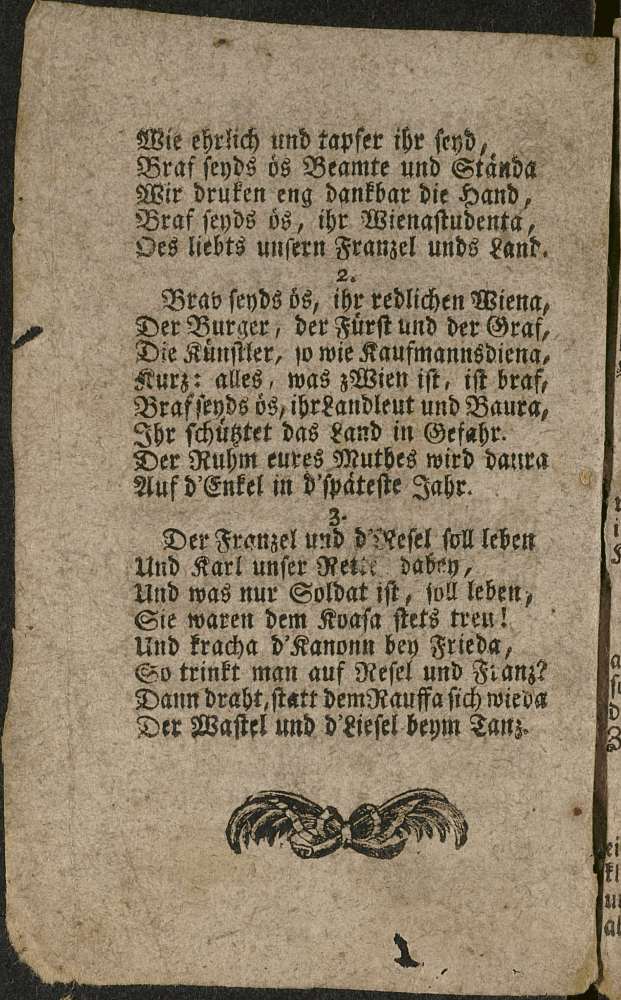 Wie ehrlich und tapfer ihr seyd,
Braf seyds ös Beamte und Stända
Wir druken eng dankbar die Hand,
Braf seyds ös, ihr Wienastudenta,
Oes liebts unsern Franzel unds Land.
2.
Brav seyds ös, ihr redlichen Wiena,
Der Burger, der Fürst und der Graf,
Die Künstler, so wie Kaufmannsdiena,
Kurz: alles, was zWien ist, ist braf,
Braf seyds ös, ihr Landleut und Baura,
Ihr schütztet das Land in Gefahr.
Der Ruhm eures Muthes wird daura
Auf d'Enkel in d'späteste Jahr.
3.
Der Franzel und d'Resel soll leben
Und Karl unser dabey,
Und was nur Soldat ist, soll leben,
Sie waren dem Koasa stets treu!
Und kracha d'Kanonn bey Frieda,
So trinkt man auf Resel und Franz?
Dann draht, statt dem Rauffa sich wieda
Der Wastel und d'Liesel beym Tanz.